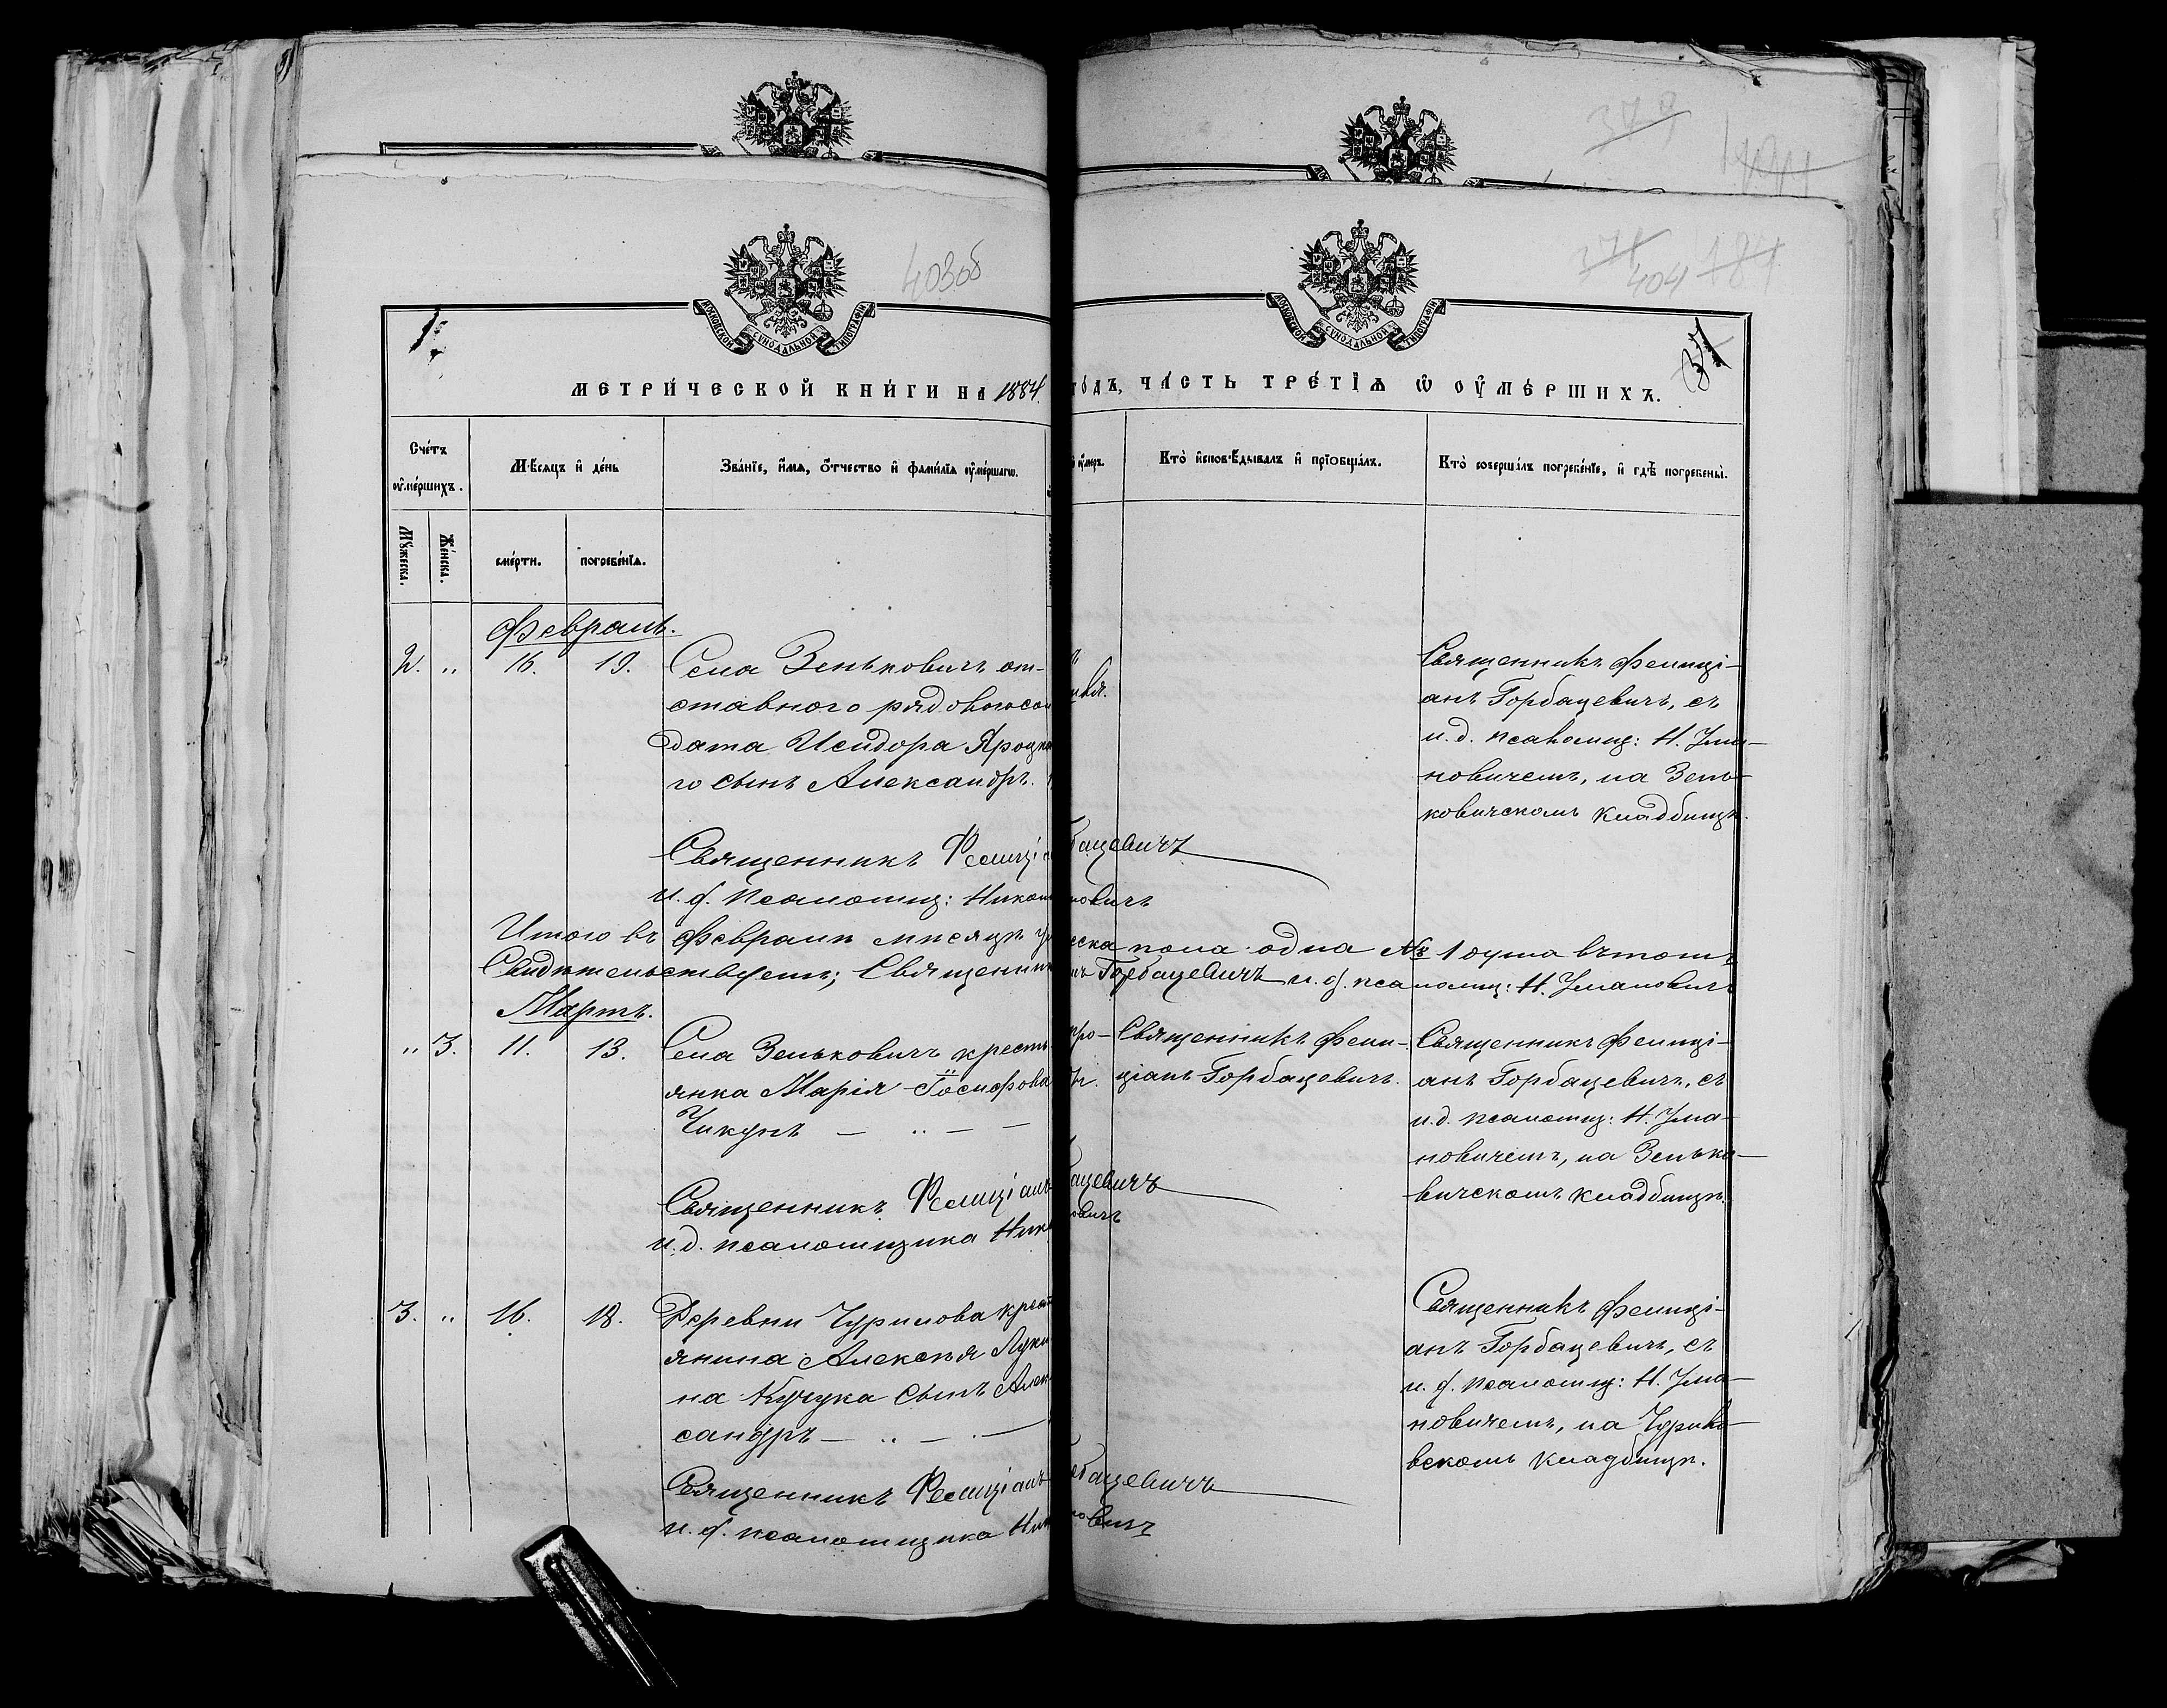 403об
404
МОСКОВСКОЙ СѴНОДАЛЬНОЙ ТИПОГРАФІИ
МОСКОВСКОЙ СѴНОДАЛЬНОЙ ТИПОГРАФІИ
МЕТРИ́ЧЕСКОЙ КНИ́ГИ НА 1884.
ГО́ДЪ, ЧА́СТЬ ТРЕ́ТЇѦ Ѡ҆ ОУ҆МЕ́РШИХЪ.
Сче́тъ оу҆ме́ршихъ.
Мѣ́сѧцъ и҆ де́нь
Зва́нїе, и҆́мѧ, ѻ҆́тчество и҆ фами́лїѧ оу҆ме́ршагѡ.
оу҆́меръ.
Кто̀ и҆сповѣ́дывалъ и҆ прїобща́лъ.
Кто̀ соверша́лъ погребе́нїе, и҆ гдѣ̀ погребены̀.
Мꙋ́жеска.
Же́нска.
сме́рти.
погребе́нїѧ.
Февраль.
2. „ 16. 19. Села Зеньковичъ от-
ставного рядового сол
дата Исидора Яроцка
го сынъ Александръ.
Священникъ Феиціі-
анъ Горбацевичъ, съ
и. д. псаломщ: Н. Ума-
новичемъ, на Зень-
ковичскомъ кладбищѣ.
Священникъ Фелиціа бацевичъ
и. д. Псаломщ: Никол новичъ
Итого въ Февралѣ мѣсяцѣ ум еска пола одна № 1 душа въ томъ
Свидѣтельствуемъ; Священник Горбацевичъ и. д. псаломщ: Н. Умановичъ
Мартъ.
„ 3. 11. 13. Села Зеньковичъ кресть
янка Марія Іосифова
Чикунъ — „ — —
Священникъ Фели-
ціанъ Горбацевичъ.
Священникъ Фелиці-
анъ Горбацевичъ, съ
и. д. псаломщ: Н. Ума-
новичемъ, на Зенько-
вичскомъ кладбищѣ.
Священникъ Фелиціанъ бацевичъ
и. д. псаломщика Ник овичъ
3. „ 16. 18. Деревни Чурилова крест
янина Алексѣя Луки
на Кучука сынъ Алек
сандръ — „ — —
Священникъ Фелиці-
анъ Горбацевичъ, съ
и. д. псаломщ: Н. Ума-
новичемъ, на Чурило-
вскомъ кладбищѣ.
Священникъ Фелиціанъ бацевичъ
и. д. псаломщика Ник новичъ